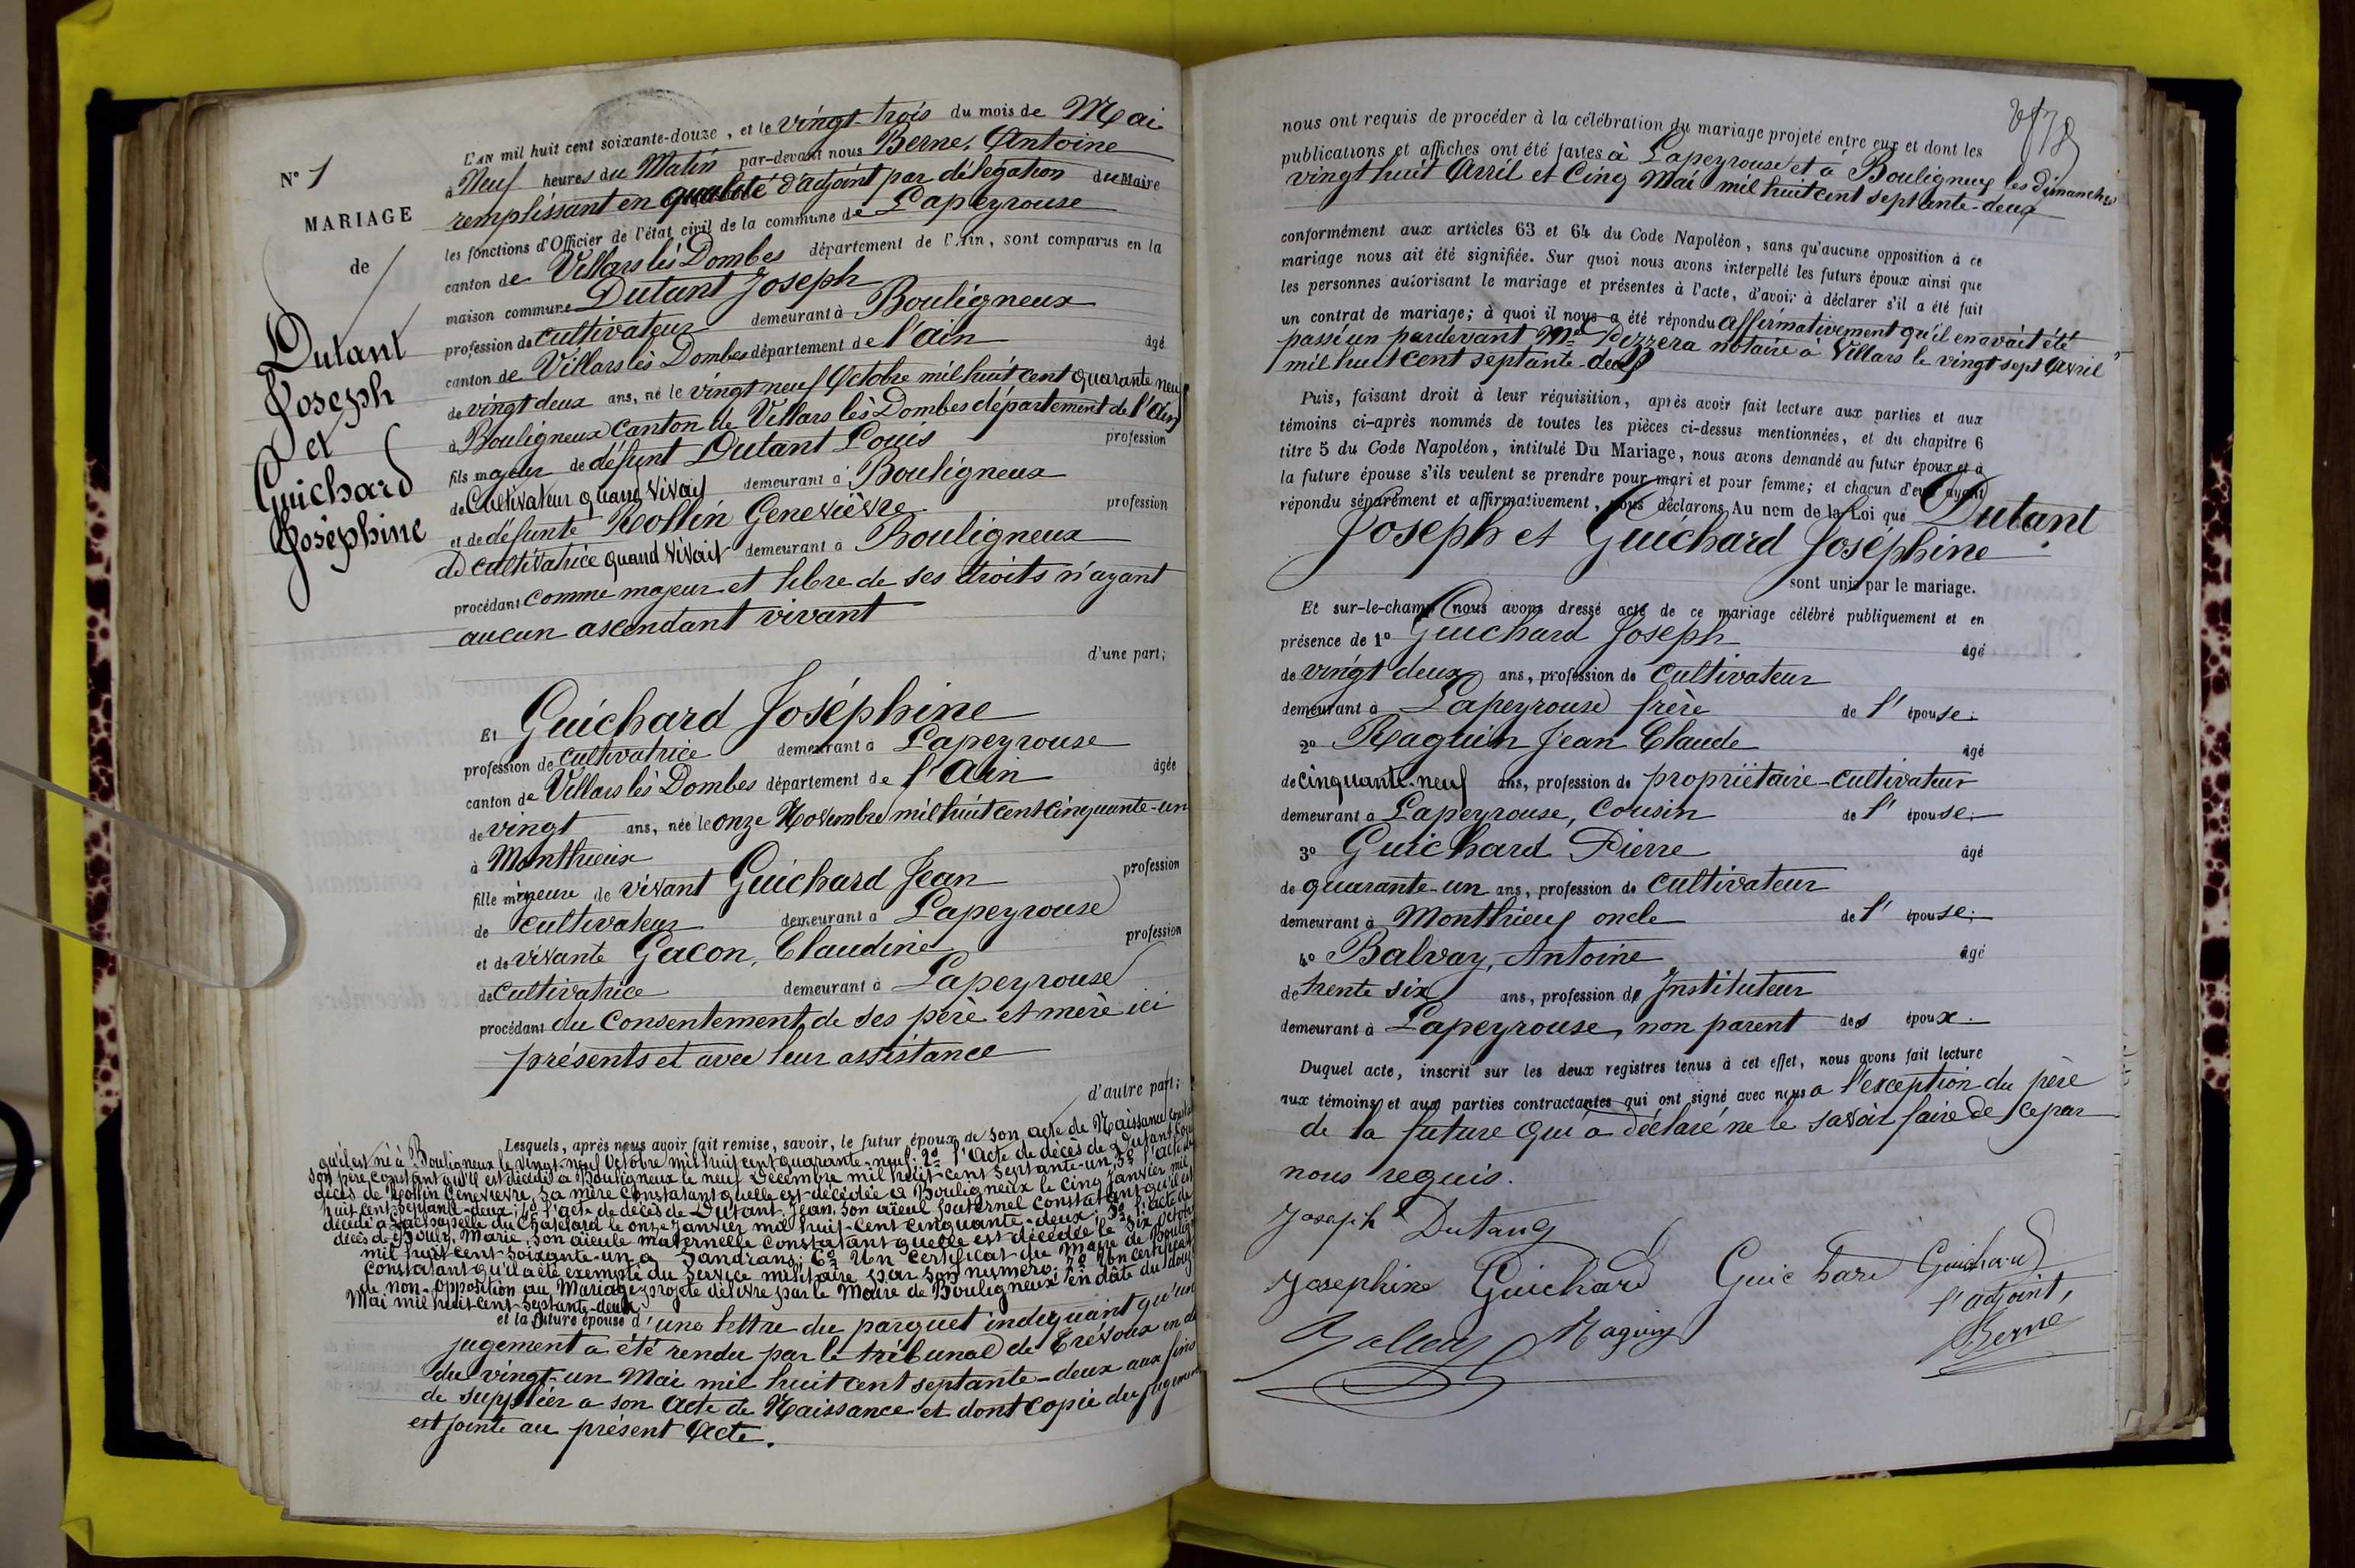 N° 1
MARIAGE
de
Dutant
Joseph
et
Guichard
Joséphine
L'AN mil huit cent soixante-douze, et le vingt-trois du mois de Mai
à Neuf heures du Matin par-devant nous Berne, Antoine
remplissant en qualité d'adjoint par délégation du Maire
les fonctions d'Officier de l'état civil de la commune de Lapeyrouse
canton de Villars lès Dombes département de l'Ain, sont comparus en la
maison commune Dutant Joseph
profession de cultivateur demeurant à Bouligneux
canton de Villars lès Dombes département de l'ain âgé
de vingt deux ans, né le vingt neuf Octobre mil huit cent quarante neuf
à Bouligneux canton de Villars lès Dombes département de l'Ain
fils majeur de défunt Dutant Louis profession
de Cultivateur quand vivait demeurant à Bouligneux
et de défunte Rollin Geneviève profession
de cultivatrice quand vivait demeurant à Bouligneux
procédant comme majeur et libre de ses droits n'ayant
aucun ascendant vivant
d'une part;
Et Guichard Joséphine
profession de cultivatrice demeurant à Lapeyrouse
canton de Villars lès Dombes département de l'Ain âgée
de vingt ans, née le onze Novembre mil huit cent cinquante-un
à Monthieux
fille mineure de vivant Guichard Jean profession
de cultivateur demeurant à Lapeyrouse
et de vivante Gacon, Claudine profession
de cultivatrice demeurant à Lapeyrouse
procédant du consentement de ses père et mère ici
présents et avec leur assistance
d'autre part;
Lesquels, après nous avoir fait remise, savoir, le futur époux de son acte de Naissance
qu'il est né à Bouligneux le vingt-neuf Octobre mil huit cent quarante-neuf; 2° l'Acte de décès de Dutant
son père constatant qu'il est décédé à Bouligneux le neuf Décembre mil huit-cent septante-un; 3° l'acte de
décès de Rollin Geneviève, sa mère constatant quelle est décédée à Bouligneux le cinq Janvier mil
huit cent septante-deux; 4° l'acte de décès de Dutant Jean, son aïeul paternel constatant qu'il est
décédé à Lachapelle du Châtelard le onze Janvier mil huit-cent cinquante-deux; 5° l'acte de
décès de Bouly, Marie, son aïeule maternelle constatant quelle est décédée le six Octobre
mil huit-cent-soixante-un à Sandrans; 6° Un certificat du Maire de
constatant qu'il a été exempté du service militaire par son numéro; 7° Un certificat
de non-opposition au Mariage projeté délivré par le Maire de Bouligneux en date du
Mai mil huit-cent-septante-deux
et la future épouse d'une lettre du parquet indiquant qu'un
jugement a été rendu par le tribunal de Trévoux en
du vingt-un Mai mil huit cent septante-deux aux fins
de suppléer à son Acte de Naissance et dont copie du jugement
est jointe au présent Acte.
nous ont requis de procéder à la célébration du mariage projeté entre eux et dont les
publications et affiches ont été faites à Lapeyrouse et à Bouligneux les dimanches
vingt huit Avril et Cinq Mai mil huit cent septante-deux
conformément aux articles 63 et 64 du Code Napoléon, sans qu'aucune opposition à ce
mariage nous ait été signifiée. Sur quoi nous avons interpellé les futurs époux ainsi que
les personnes autorisant le mariage et présentes à l'acte, d'avoir à déclarer s'il a été fait
un contrat de mariage; à quoi il nous a été répondu affirmativement qu'il en avait été
passé un pardevant Me notaire à Villars le vingt sept Avril
mil huit cent septante-deux
Puis, faisant droit à leur réquisition, après avoir fait lecture aux parties et aux
témoins ci-après nommés de toutes les pièces ci-dessus mentionnées, et du chapitre 6
titre 5 du Code Napoléon, intitulé Du Mariage, nous avons demandé au futur époux et à
la future épouse s'ils veulent se prendre pour mari et pour femme; et chacun d'eux ayant
répondu séparément et affirmativement, nous déclarons Au nom de la Loi que Dutant
Joseph et Guichard Joséphine
sont unis par le mariage.
Et sur-le-champ nous avons dressé acte de ce mariage célébré publiquement et en
présence de 1° Guichard Joseph âgé
de vingt deux ans, profession de cultivateur
demeurant à Lapeyrouse frère de l'épouse;
2° Raguin Jean Claude âgé
de cinquante-neuf ans, profession de propriétaire-cultivateur
demeurant à Lapeyrouse, cousin de l'épouse;
3° Guichard Pierre âgé
de quarante-un ans, profession de cultivateur
demeurant à Monthieux oncle de l'épouse;
4° Balvay, Antoine âgé
de trente six ans, profession de Instituteur
demeurant à Lapeyrouse, non parent des époux.
Duquel acte, inscrit sur les deux registres tenus à cet effet, nous avons fait lecture
aux témoins et aux parties contractantes qui ont signé avec nous à l'exception du père
de la future qui a déclaré ne le savoir faire de ce par
nous requis.
Joseph Dutang
Josephine Guichard Guichard Guichard
l'adjoint,
Balvay Raguin Berne